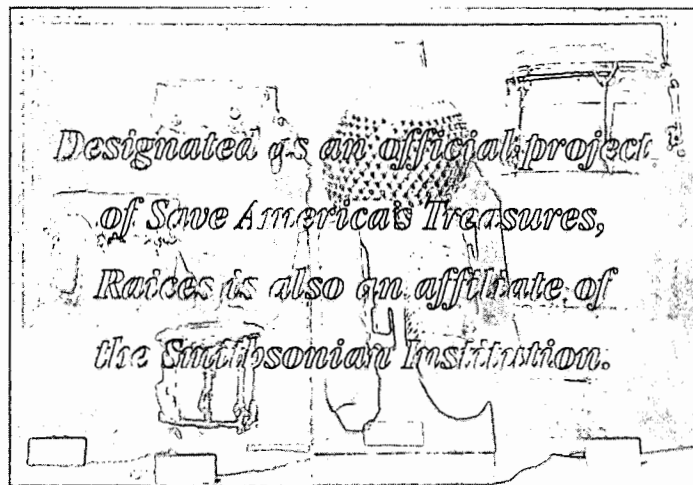 Designated as an official project
of Save America's Treasures,
Raices is also an affiliate of
the Smithsonian Institution.